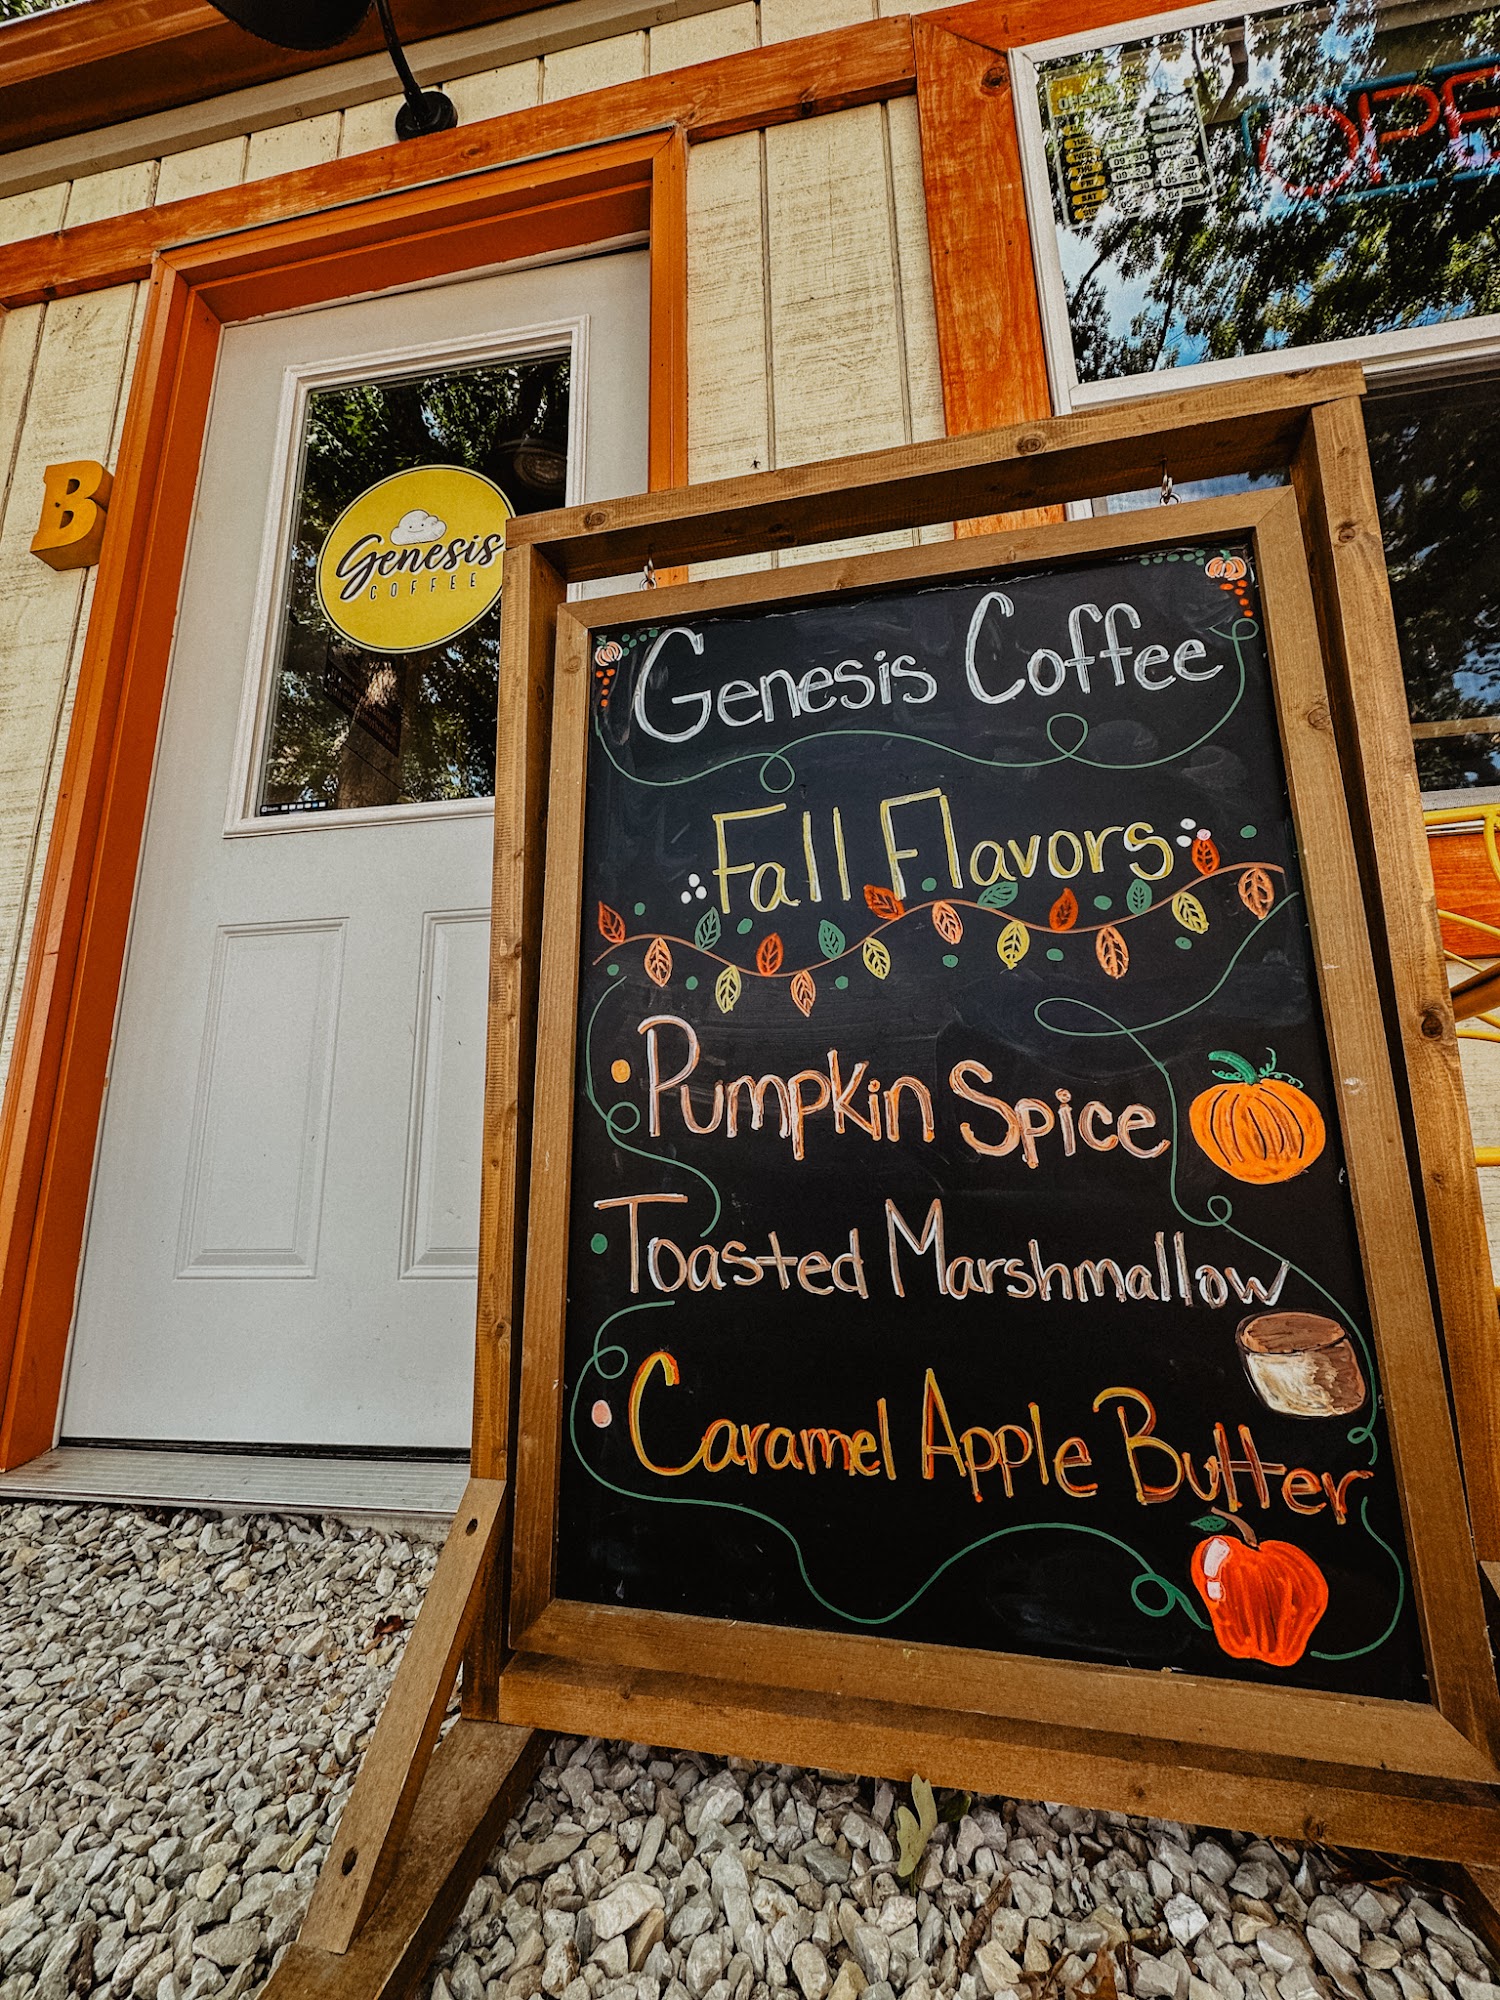 B
Genesis
COFFEE
OPE
Genesis Coffee
Fall Flavors
Pumpkin Spice
Toasted Marshmallow
Caramel Apple Butter